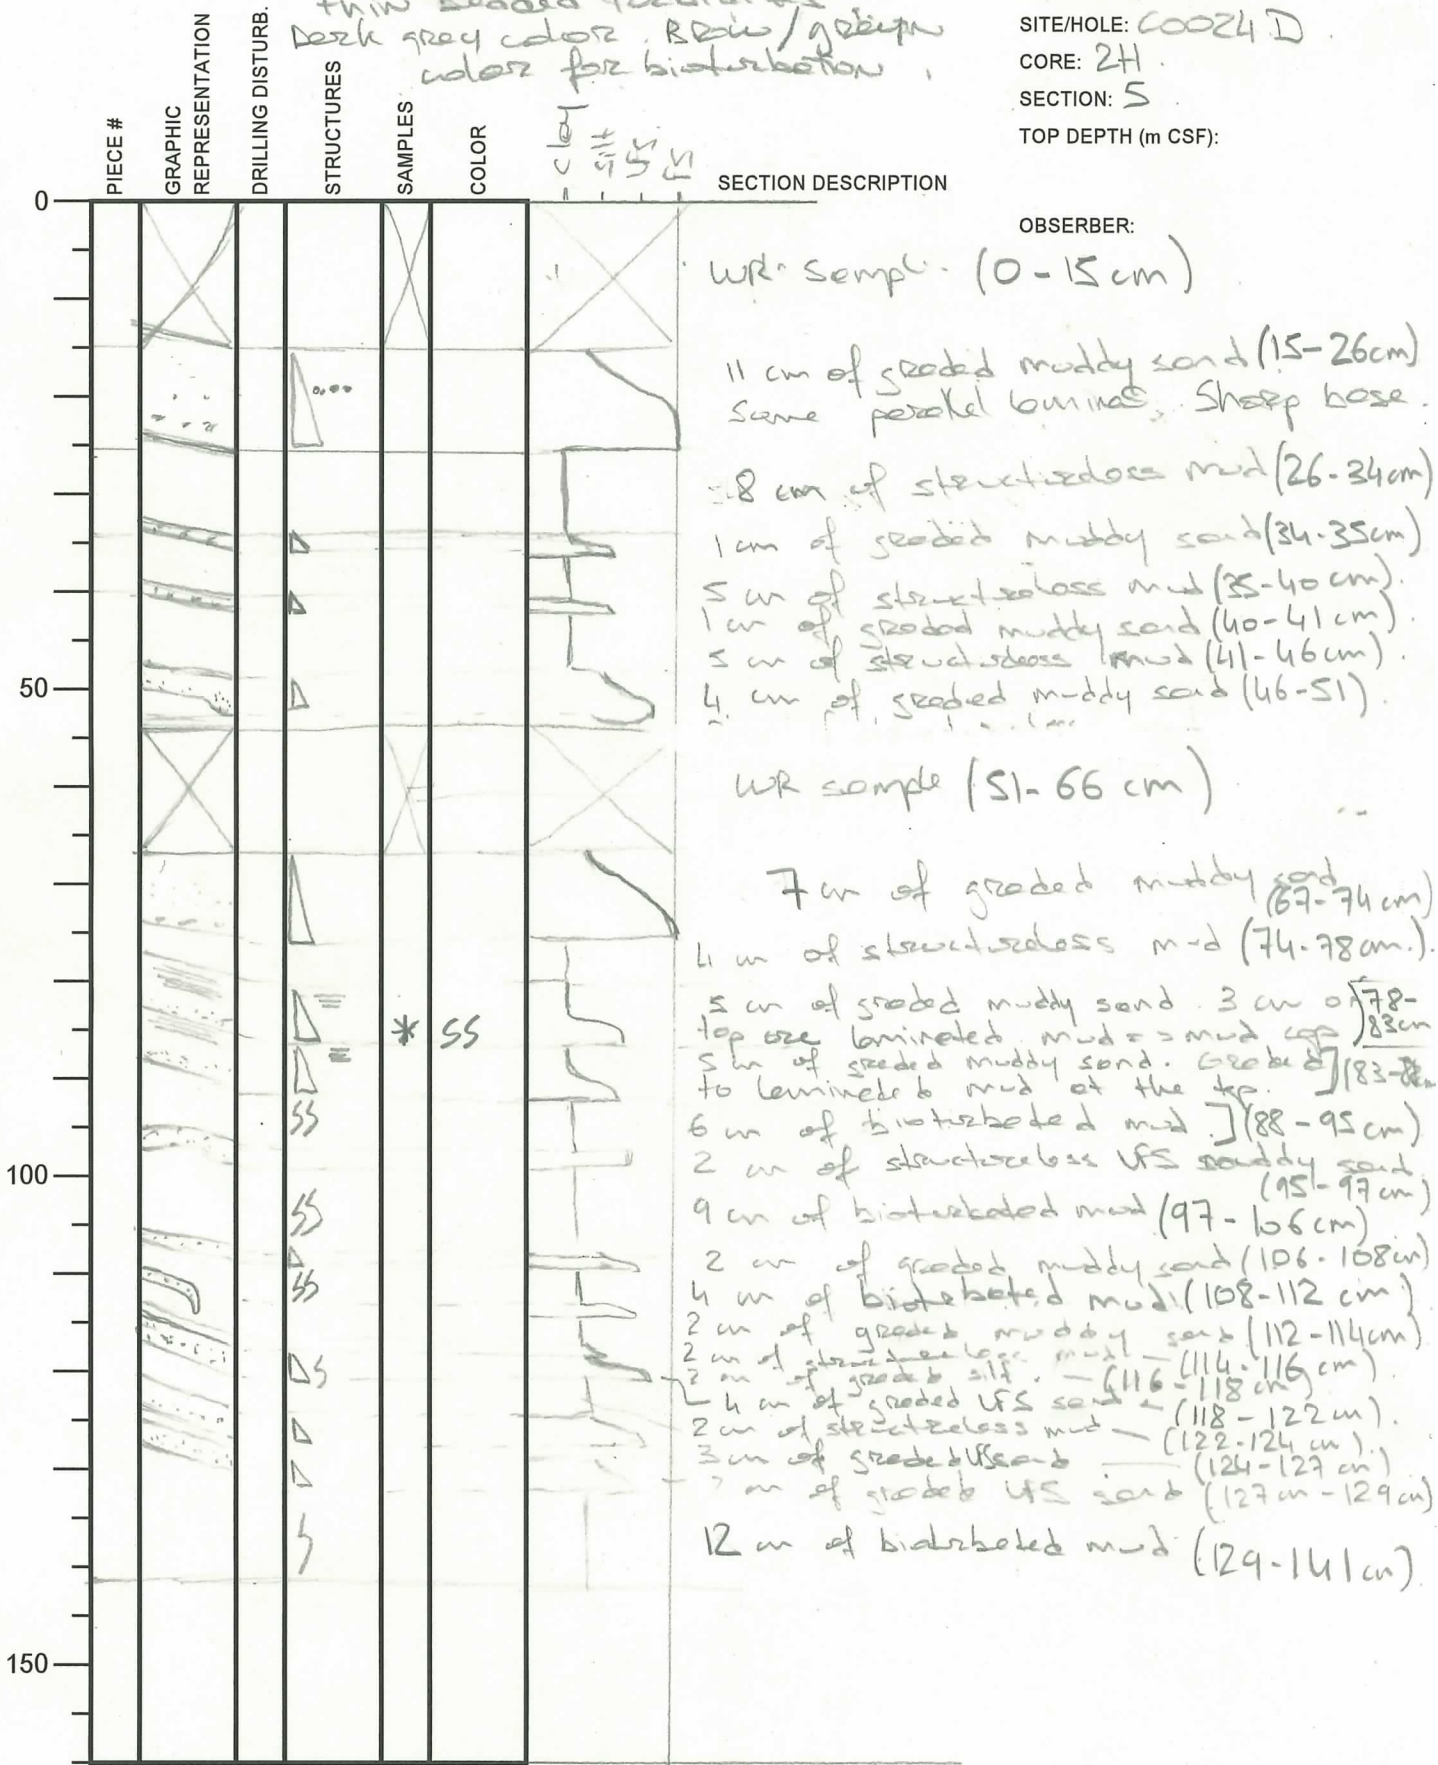 thin bedded turbidites
Dark grey color. Brow/greeyn
color for bioturbation.
SITE/HOLE: C0024 D
CORE: 2H
SECTION: 5
TOP DEPTH (m CSF):
OBSERBER:
PIECE #
GRAPHIC
REPRESENTATION
DRILLING DISTURB.
STRUCTURES
SAMPLES
COLOR
clay
silt
VFS
FS
SECTION DESCRIPTION
0
WR Sampl. (0-15cm)
11 cm of graded muddy sand (15-26cm)
Some parallel laminas. Sharp base.
8 cm of structureless mud (26-34cm)
1 cm of graded muddy sand (34-35cm)
5 cm of structureless mud (35-40 cm).
1 cm of graded muddy sand (40-41 cm).
5 cm of structureless mud (41-46 cm).
50
4 cm of graded muddy sand (46-51).
WR sample (51-66 cm)
7 cm of graded muddy sand
(67-74 cm)
4 cm of structureless mud (74-78cm.).
5 cm of graded muddy sand. 3 cm on
top are laminated mud => mud cap
78-
83cm
* SS
5 cm of graded muddy sand. Graded
to laminated mud at the top.
(83-
6 cm of bioturbated mud. ] (88-95 cm)
2 cm of structureless VFS muddy sand
(95-97 cm)
100
9 cm of bioturbated mud (97-106 cm)
2 cm of graded muddy sand (106-108cm)
4 cm of bioturbated mud (108-112 cm)
2 cm of graded muddy sand (112-114cm)
2 cm of structureless mud — (114-116 cm)
2 cm of graded silt. — (116-118 cm)
4 cm of graded VFS sand (118-122 cm).
2 cm of structureless mud — (122-124 cm).
3 cm of graded VFS sand — (124-127 cm)
cm of graded VFS sand (127 cm-129 cm)
12 cm of bioturbated mud (129-141 cm)
150